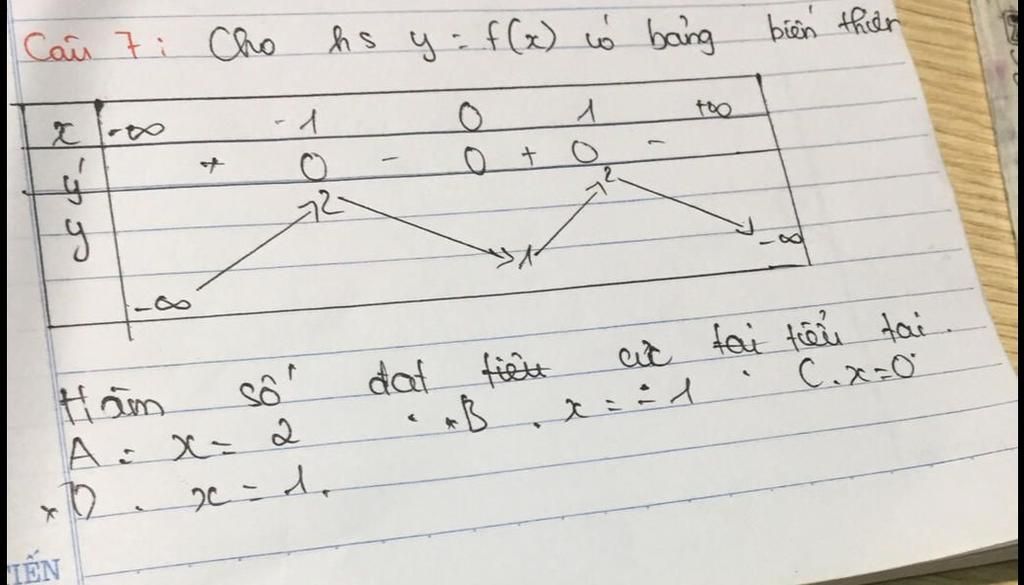 Câu 7: Cho hs y = f(x) có bảng biến thiên
x -∞ -1 0 1 +∞
y' + 0 - 0 + 0 -
y -∞ 2 1 2 -∞
Hàm số đạt tiểu cực tại tiểu tại.
A. x = 2 *B. x = -1. C. x=0
*D. x = 1.
TIẾN